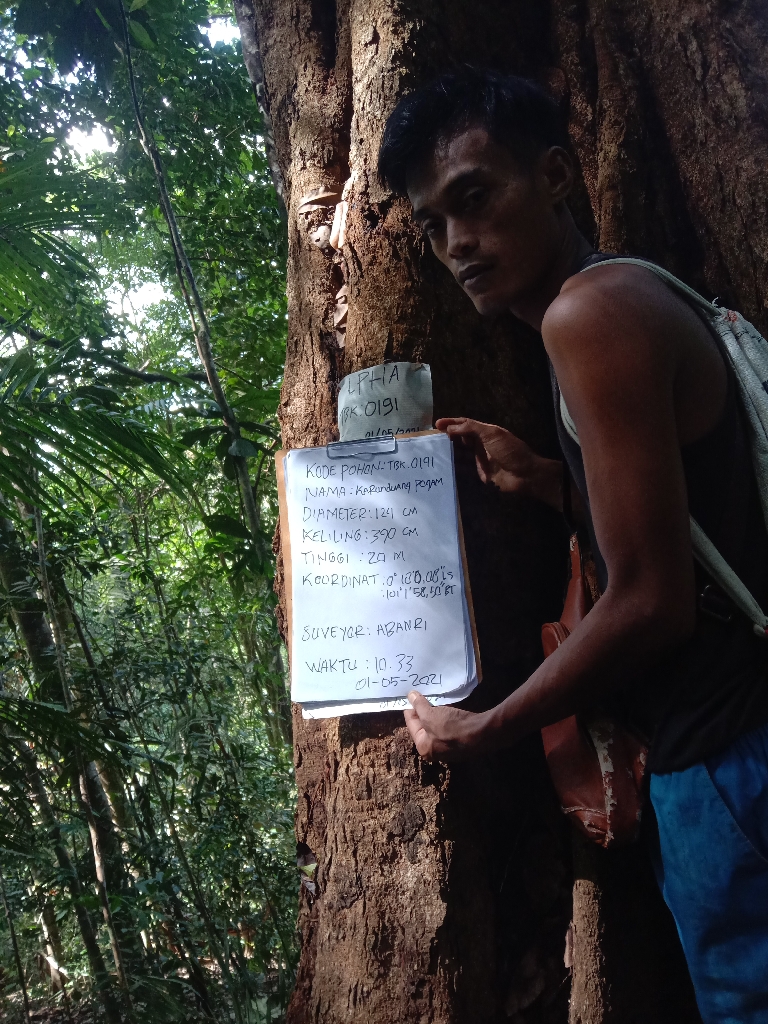 LPHA
TBK.0191
01/05/2021
KODE POHON: TBK.0191
NAMA: Karunduang Pogam
DIAMETER: 124 CM
KELILING: 390 CM
TINGGI: 20 M
KOORDINAT: 0° 10' 0,08" LS
: 101° 1' 58,50" BT
SUVEYOR: ABANRI
WAKTU: 10.33
01-05-2021